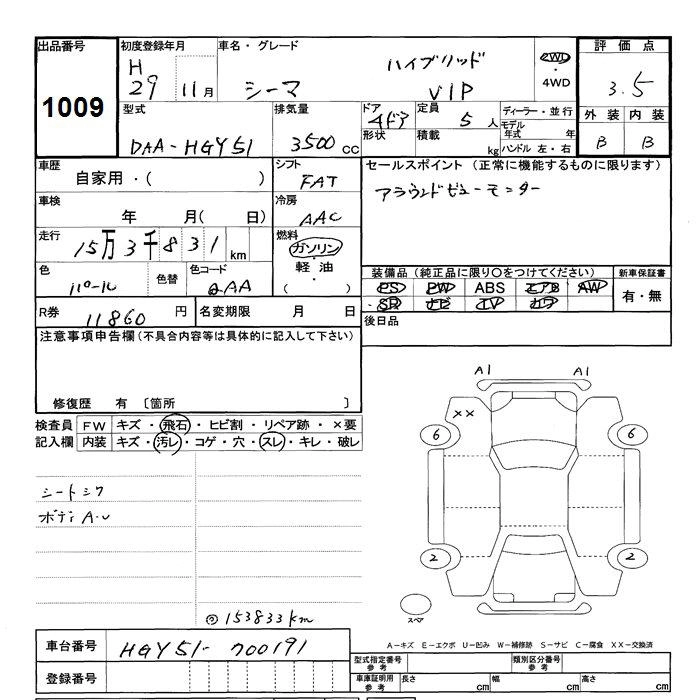 出品番号
1009
初度登録年月
H 29 11月
車名・グレード
シーマ ハイブリッド VIP
2WD
・
4WD
評価点
3.5
外装 内装
B B
型式
DAA-HGY51
排気量
3500 CC
ドア 4ドア
形状
定員 5 人
積載 kg
ディーラー・並行
モデル年式 年
ハンドル 左・右
車歴
自家用・( )
シフト
FAT
セールスポイント (正常に機能するものに限ります)
アラウンドビューモニター
車検
年 月( 日)
冷房
AAC
走行
15万3千831 km
燃料
ガソリン
・
軽油
・
( )
色
パール
色替
色コード
QAA
装備品(純正品に限り○をつけてください)
PS PW ABS エアB AW
SR ナビ TV カワ
新車保証書
有・無
R券 11860 円
名変期限 月 日
後日品
注意事項申告欄(不具合内容等は具体的に記入して下さい)
修復歴 有 〔箇所 〕
検査員記入欄
FW キズ・飛石・ヒビ割・リペア跡・×要
内装 キズ・汚レ・コゲ・穴・スレ・キレ・破レ
シートシワ
ボディA・U
153833km
A1 A1
××
6 6
2 2
スペア
A-キズ E-エクボ U-凹み W-補修跡 S-サビ C-腐食 XX-交換済
車台番号 HGY51-700191
登録番号
型式指定番号 参考
類別区分番号 参考
車庫証明用 参考
長さ cm 幅 cm 高さ cm